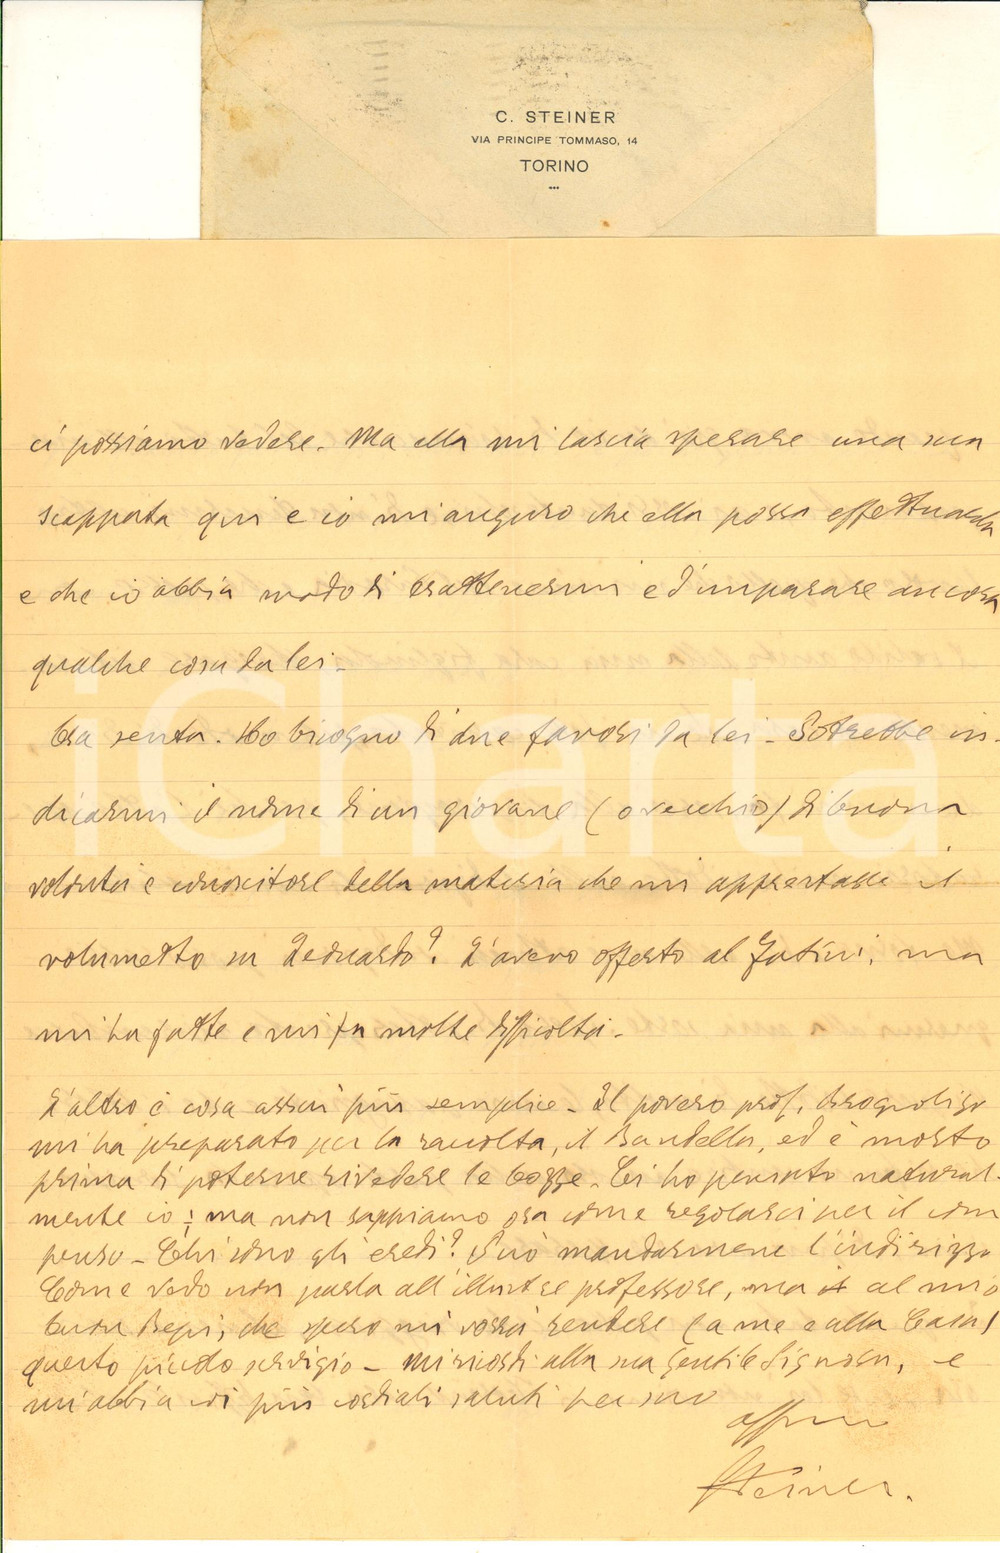 C. STEINER
VIA PRINCIPE TOMMASO, 14
TORINO
ci possiamo vedere. Ma ella mi lascia sperare una sua
scappata qui e io mi auguro che ella possa effettuarla
e che io abbia modo di trattenermi e d'imparare ancora
qualche cosa da lei.
Ora senta. Ho bisogno di due favori da lei. Potrebbe in-
dicarmi il nome di un giovane (o vecchio) di buona
volontà e conoscitore della materia che mi apprestasse il
volumetto su Leonardo? L'avevo offerto al Fatini, ma
mi ha fatte e mi fa molte difficoltà.
L'altro è cosa assai più semplice. Il povero prof. Brognoligo
mi ha preparato per la raccolta, il Bandello, ed è morto
prima di poterne rivedere le bozze. Ci ho pensato natural-
mente io; ma non sappiamo ora come regolarci per il com
penso. Chi sono gli eredi? Può mandarmene l'indirizzo
Come vedo non parla all'illustre professore, ma al mio
buon che spero mi vorrà rendere (a me e alla Casa)
questo piccolo servigio. Mi ricordi alla sua gentile Signora, e
mi abbia coi più cordiali saluti per suo
affmo
Steiner.
iCharta